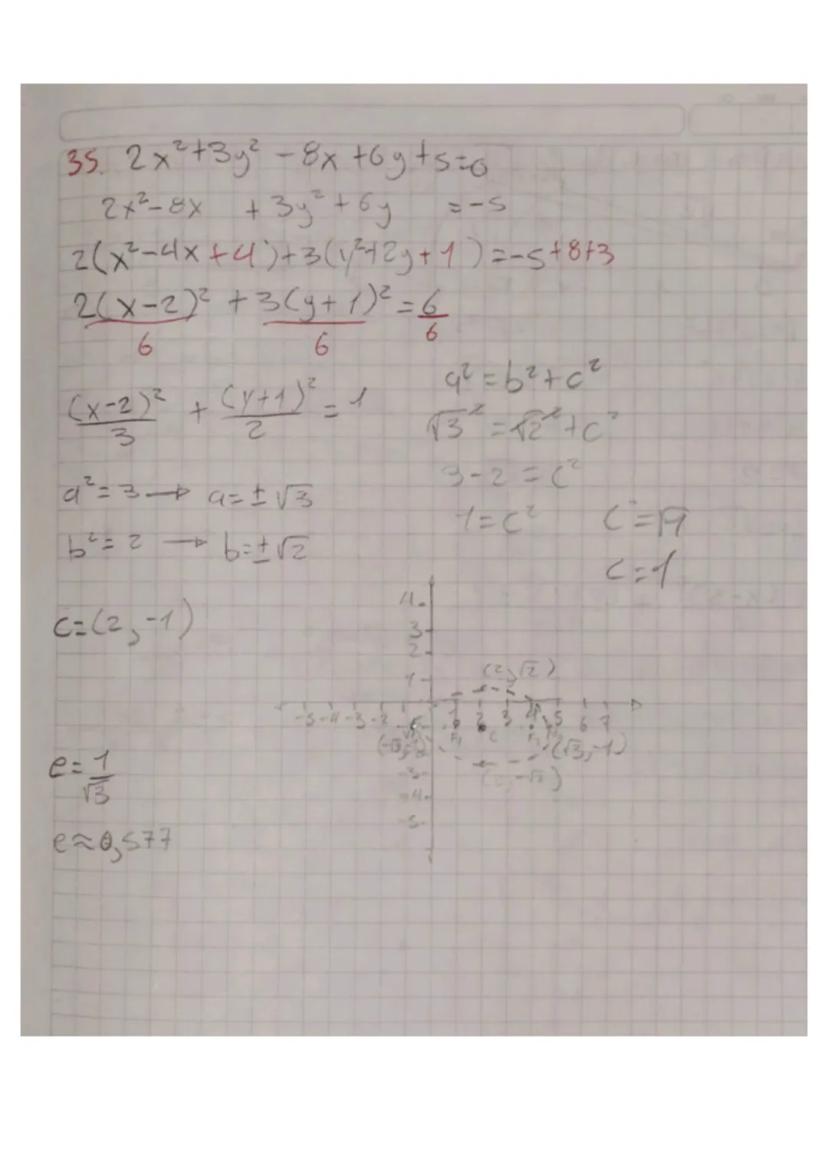 35. 2x²+3y² -8x+6y+5=0
2x²-8x +3y²+6y =-5
2(x²-4x+4)+3(y²+2y+1)=-5+8+3
2(x-2)²/6 + 3(y+1)²/6 = 6/6
(x-2)²/3 + (y+1)²/2 = 1
a²=b²+c²
√3²=√2²+c²
3-2=c²
1=c²
c=1
a²=3→ a=±√3
b²=2 → b=±√2
c=(2,-1)
e=1/√3
e≈0,577
4
3
2
1
(2,√2)
-5 -4 -3 -2 1 2 3 4 5 6 7
F₁ C
(√3,-1)
-3
-4
-5